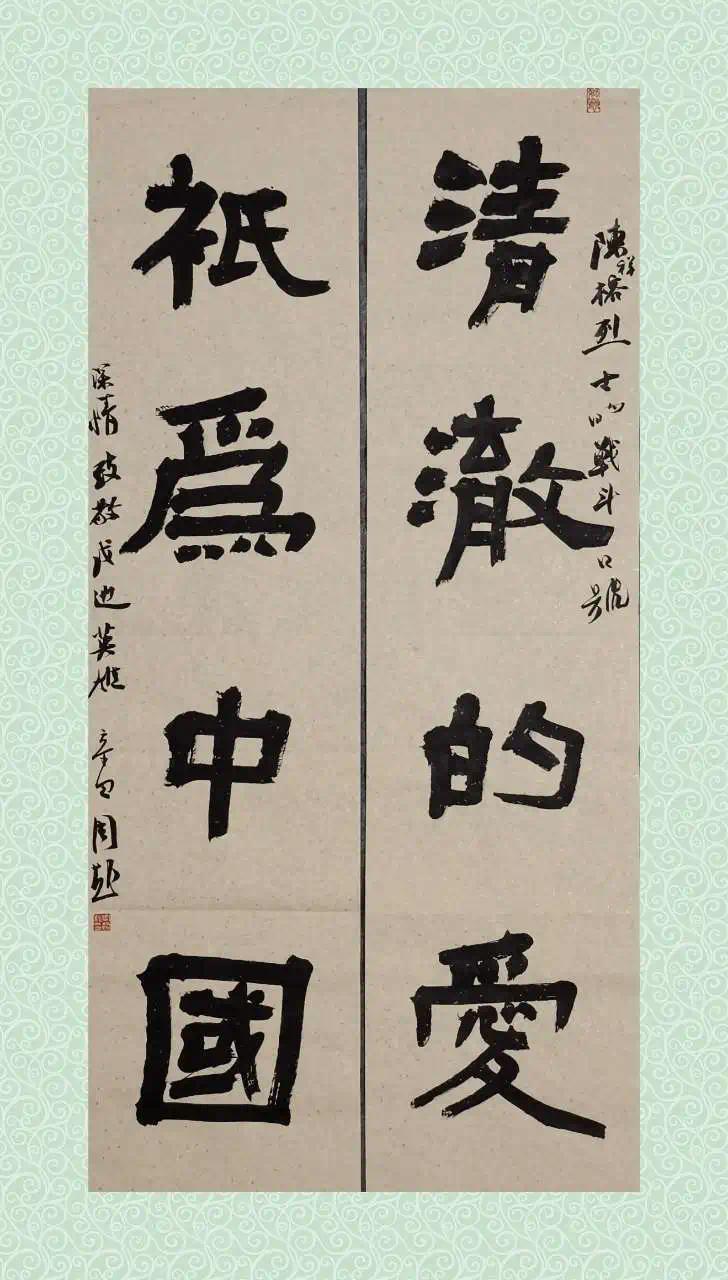 陳祥榕烈士的戰斗口號
清澈的愛
祇爲中國
深情致敬戍边英雄 辛丑 周